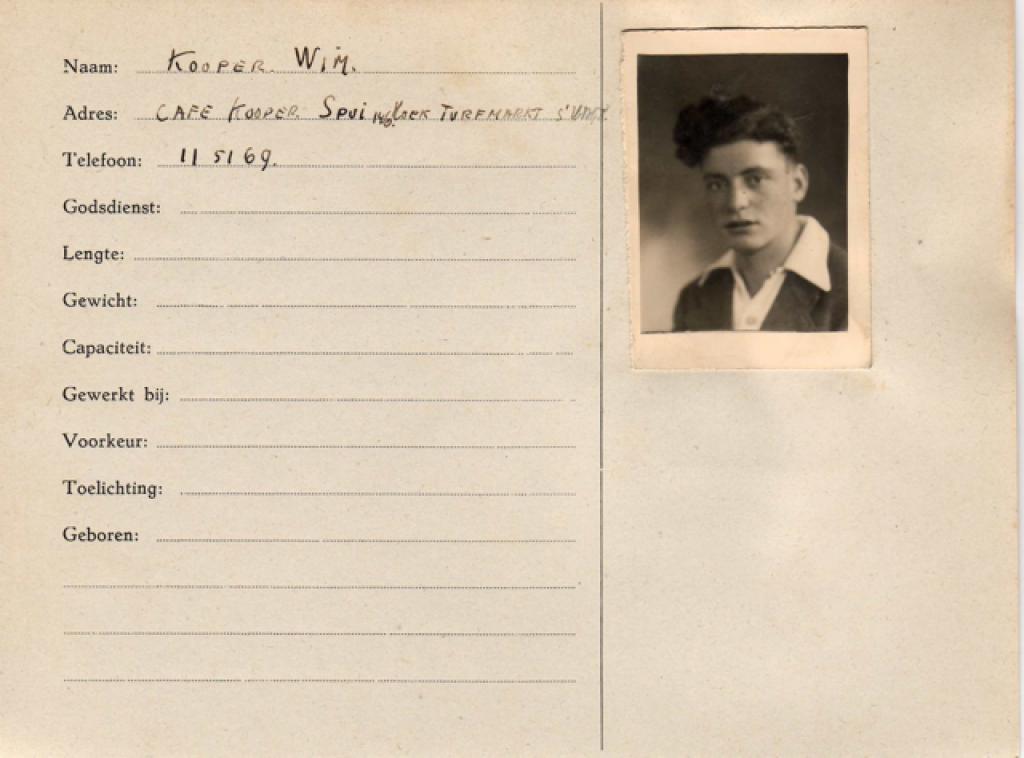 Naam: KOOPER. WIM.
Adres: CAFE KOOPER. SPUI HOEK TURFMARKT
Telefoon: 11 51 69.
Godsdienst:
Lengte:
Gewicht:
Capaciteit:
Gewerkt bij:
Voorkeur:
Toelichting:
Geboren: